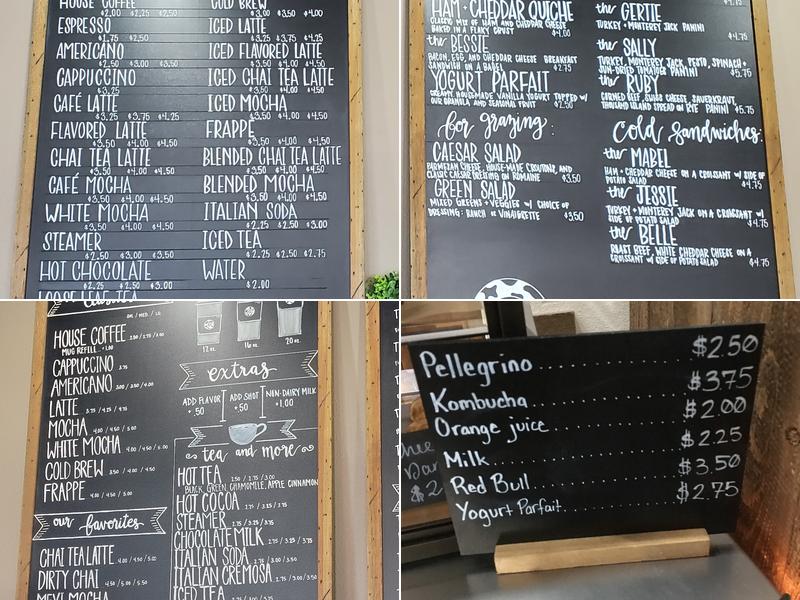 HOUSE COFFEE
$2.00 $2.25 $2.50
ESPRESSO
$1.75 $2.50
AMERICANO
$2.50 $3.00 $3.50
CAPPUCCINO
$3.25
CAFÉ LATTE
$3.25 $3.75 $4.25
FLAVORED LATTE
$3.50 $4.00 $4.50
CHAI TEA LATTE
$3.50 $4.00 $4.50
CAFÉ MOCHA
$3.50 $4.00 $4.50
WHITE MOCHA
$3.50 $4.00 $4.50
STEAMER
$2.50 $3.00 $3.50
HOT CHOCOLATE
$2.00 $2.50 $3.00
LOOSE LEAF TEA
COLD BREW
$3.00 $3.50 $4.00
ICED LATTE
$3.25 $3.75 $4.25
ICED FLAVORED LATTE
$3.50 $4.00 $4.50
ICED CHAI TEA LATTE
$3.50 $4.00 $4.50
ICED MOCHA
$3.50 $4.00 $4.50
FRAPPÉ
$3.50 $4.00 $4.50
BLENDED CHAI TEA LATTE
$3.50 $4.00 $4.50
BLENDED MOCHA
$3.50 $4.00 $4.50
ITALIAN SODA
$2.25 $2.50 $3.00
ICED TEA
$2.25 $2.50 $2.75
WATER
$2.00
HAM + CHEDDAR QUICHE
CLASSIC MIX OF HAM AND CHEDDAR CHEESE
BAKED IN A FLAKY CRUST
$4.00
the BESSIE
BACON, EGG, AND CHEDDAR CHEESE BREAKFAST
SANDWICH ON A BAGEL
$2.75
YOGURT PARFAIT
CREAMY HOUSEMADE VANILLA YOGURT TOPPED w/
OUR GRANOLA AND SEASONAL FRUIT
$2.50
for grazing:
CAESAR SALAD
PARMESAN CHEESE, HOUSE-MADE CROUTONS, AND
CLASSIC CAESAR DRESSING ON ROMAINE
$3.50
GREEN SALAD
MIXED GREENS + VEGGIES w/ CHOICE OF
DRESSING: RANCH or VINAIGRETTE
$3.50
$4.75
the GERTIE
TURKEY + MONTEREY JACK PANINI
$4.75
the SALLY
TURKEY, MONTEREY JACK, PESTO, SPINACH +
SUN-DRIED TOMATOES PANINI
$5.75
the RUBY
CORNED BEEF, SWISS CHEESE, SAUERKRAUT,
THOUSAND ISLAND SPREAD ON RYE PANINI
$5.75
Cold Sandwiches:
the MABEL
HAM + CHEDDAR CHEESE ON A CROISSANT w/ SIDE OF
POTATO SALAD
$4.75
the JESSIE
TURKEY + MONTEREY JACK ON A CROISSANT w/
SIDE OF POTATO SALAD
$4.75
the BELLE
ROAST BEEF, WHITE CHEDDAR CHEESE ON A
CROISSANT w/ SIDE OF POTATO SALAD
$4.75
SM. / MED. / LG.
HOUSE COFFEE 2.50 / 2.75 / 3.00
MUG REFILL +1.00
CAPPUCCINO 3.75
AMERICANO 3.00 / 3.50 / 4.00
LATTE 3.75 / 4.25 / 4.75
MOCHA 4.00 / 4.50 / 5.00
WHITE MOCHA 4.00 / 4.50 / 5.00
COLD BREW 3.50 / 4.00 / 4.50
FRAPPE 4.00 / 4.50 / 5.00
our favorites
CHAI TEA LATTE 4.00 / 4.50 / 5.00
DIRTY CHAI 4.50 / 5.00 / 5.50
MEXI MOCHA
12 oz. 16 oz. 20 oz.
extras
ADD FLAVOR +.50
ADD SHOT +.50
NON-DAIRY MILK +1.00
tea and more
HOT TEA 2.50 / 2.75 / 3.00
BLACK, GREEN, CHAMOMILE, APPLE CINNAMON
HOT COCOA 2.75 / 3.25 / 3.75
STEAMER 2.75 / 3.25 / 3.75
CHOCOLATE MILK 2.75 / 3.25 / 3.75
ITALIAN SODA 2.75 / 3.00 / 3.50
ITALIAN CREMOSA 2.75 / 3.00 / 3.50
ICED TEA
Pellegrino ............ $2.50
Kombucha ............ $3.75
Orange juice ............ $2.00
Milk ............ $2.25
Red Bull ............ $3.50
Yogurt Parfait ............ $2.75